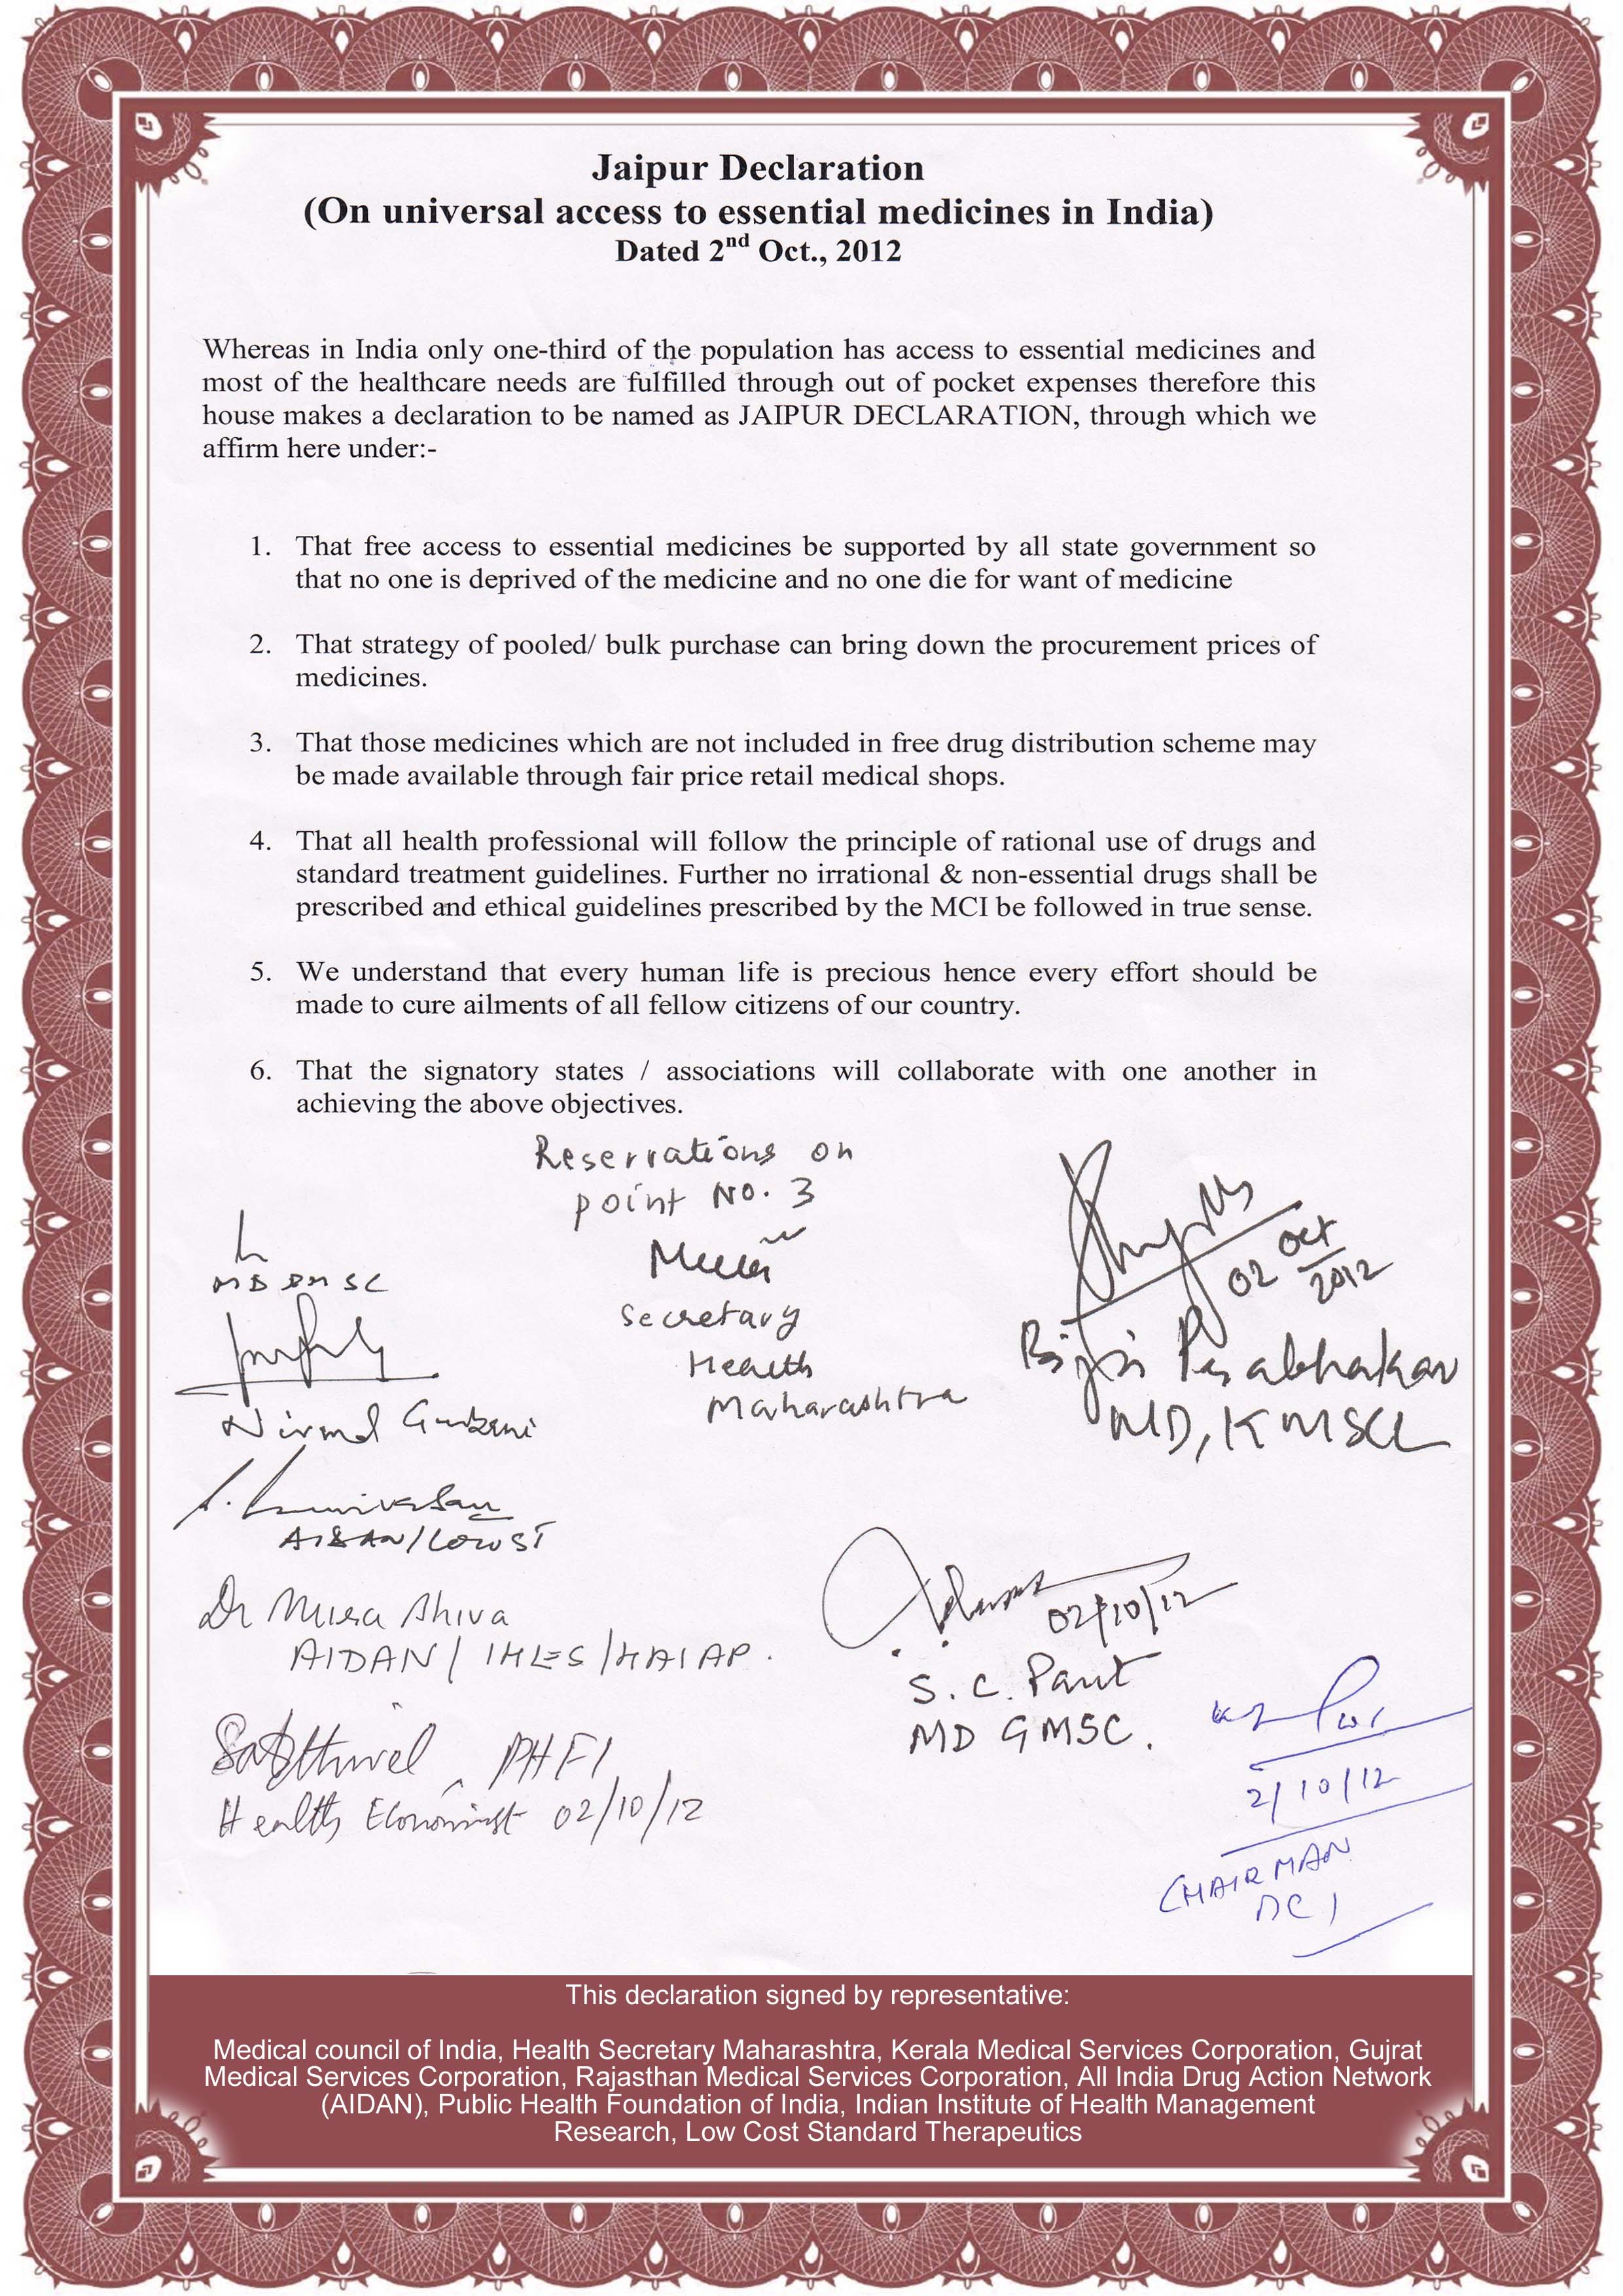 Jaipur Declaration
(On universal access to essential medicines in India)
Dated 2nd Oct., 2012
Whereas in India only one-third of the population has access to essential medicines and
most of the healthcare needs are fulfilled through out of pocket expenses therefore this
house makes a declaration to be named as JAIPUR DECLARATION, through which we
affirm here under:-
1. That free access to essential medicines be supported by all state government so
that no one is deprived of the medicine and no one die for want of medicine
2. That strategy of pooled/ bulk purchase can bring down the procurement prices of
medicines.
3. That those medicines which are not included in free drug distribution scheme may
be made available through fair price retail medical shops.
4. That all health professional will follow the principle of rational use of drugs and
standard treatment guidelines. Further no irrational & non-essential drugs shall be
prescribed and ethical guidelines prescribed by the MCI be followed in true sense.
5. We understand that every human life is precious hence every effort should be
made to cure ailments of all fellow citizens of our country.
6. That the signatory states / associations will collaborate with one another in
achieving the above objectives.
Reservations on
point No. 3
Secretary
Health
Maharashtra
02 Oct
2012
Prabhakar
MD, KMSCL
Nirmal
AIDAN/LOCOST
Dr Mira Shiva
AIDAN/ IHES/HAIAP.
PHFI
Health Economist 02/10/12
02/10/12
S. C. Pant
MD GMSC.
2/10/12
CHAIRMAN
This declaration signed by representative:
Medical council of India, Health Secretary Maharashtra, Kerala Medical Services Corporation, Gujrat
Medical Services Corporation, Rajasthan Medical Services Corporation, All India Drug Action Network
(AIDAN), Public Health Foundation of India, Indian Institute of Health Management
Research, Low Cost Standard Therapeutics